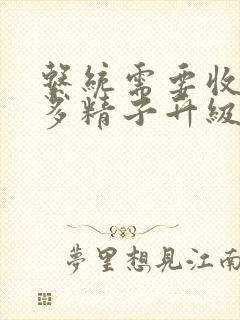 繫統需要收
多精子升級
夢里想見江南